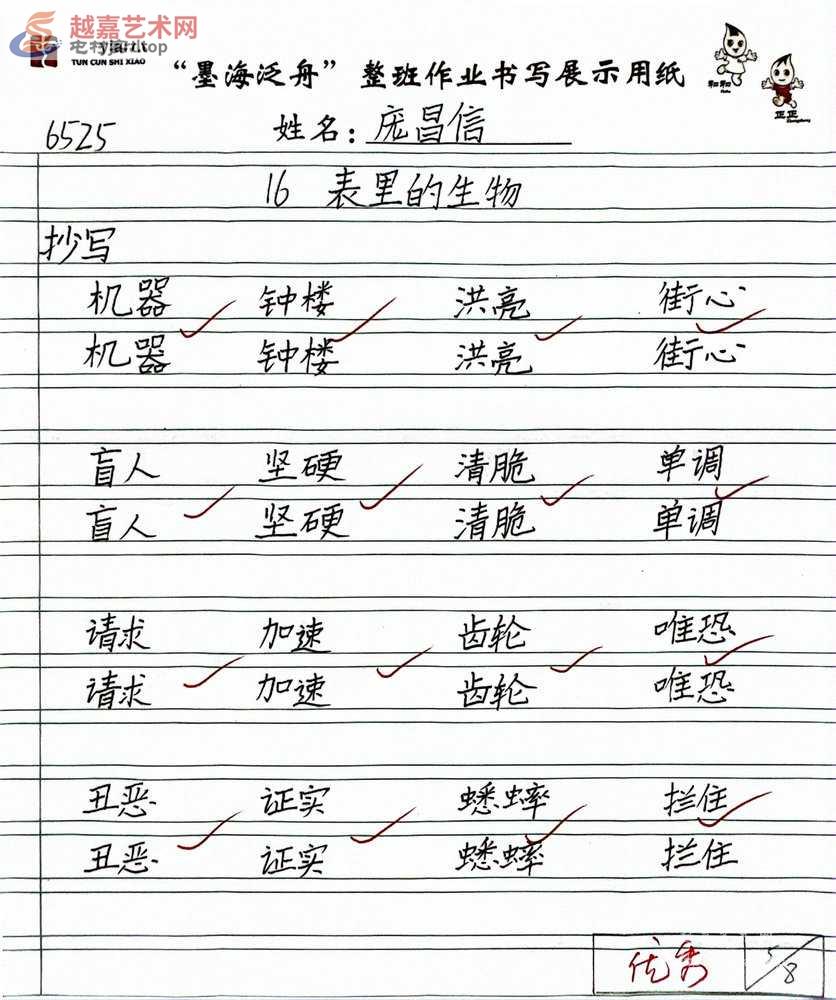 越嘉艺术网
yjart.top
TUN CUN SHI XIAO
“墨海泛舟”整班作业书写展示用纸
和和
正正
6525 姓名：庞昌信
16 表里的生物
抄写
机器 钟楼 洪亮 街心
机器 钟楼 洪亮 街心
盲人 坚硬 清脆 单调
盲人 坚硬 清脆 单调
请求 加速 齿轮 唯恐
请求 加速 齿轮 唯恐
丑恶 证实 蟋蟀 拦住
丑恶 证实 蟋蟀 拦住
优秀 5/8